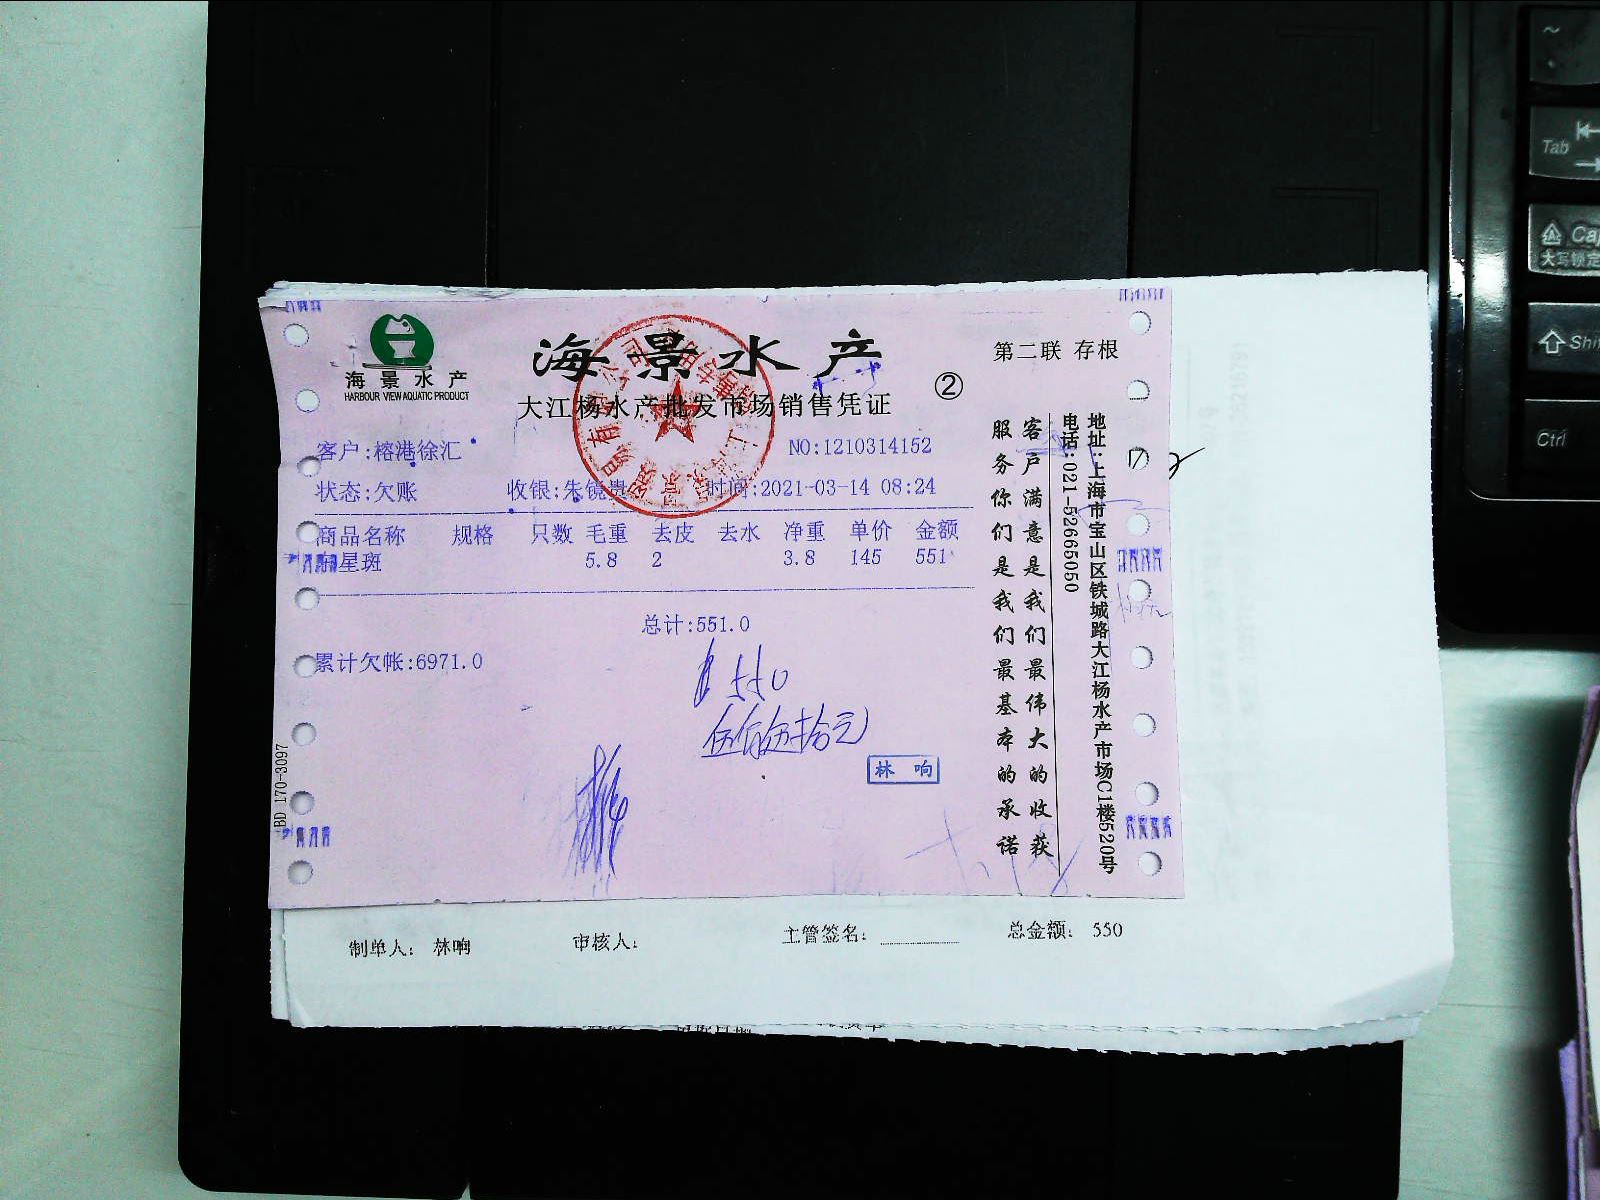 海景水产
HARBOUR VIEW AQUATIC PRODUCT
海景水产
第二联 存根
大江杨水产批发市场销售凭证
②
客户:榕港徐汇
NO:1210314152
状态:欠账 收银:朱镜贵 时间:2021-03-14 08:24
商品名称 规格 只数 毛重 去皮 去水 净重 单价 金额
星斑 5.8 2 3.8 145 551
总计:551.0
累计欠帐:6971.0
550
伍佰伍拾元
林响
客户满意是我们最伟大的收获
服务你们是我们最基本的承诺
地址:上海市宝山区铁城路大江杨水产市场C1楼520号
电话:021-52665050
BD 170-3097
制单人: 林响 审核人: 主管签名: 总金额: 550
~
Tab
大写锁定
Ctrl